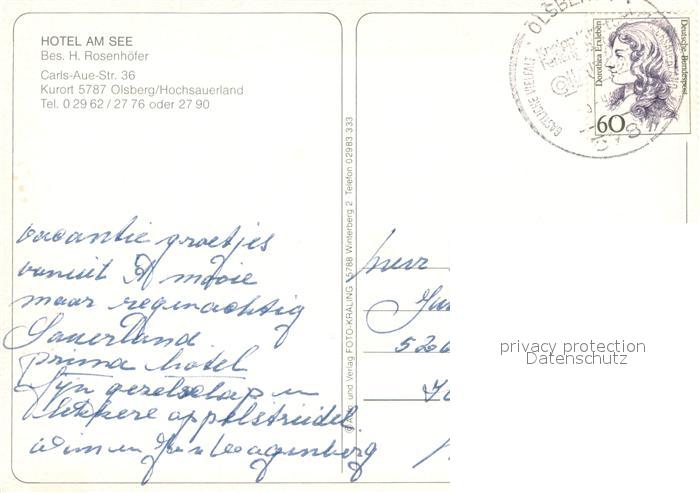 HOTEL AM SEE
Bes. H. Rosenhöfer
Carls-Aue-Str. 36
Kurort 5787 Olsberg/Hochsauerland
Tel. 0 29 62 / 27 76 oder 27 90
vacantie groetjes
vanuit 't mooie
maar regenachtig
Sauerland
prima hotel
fijn gezelschap en
lekkere appelstrüdel
Wim en Wagenberg
und Verlag FOTO-KRALING 5788 Winterberg 2 Telefon 02983-333
OLSBERG
GASTLICHE VIELFALT
Dorothea Erxleben
Deutsche Bundespost
60
526
privacy protection
Datenschutz